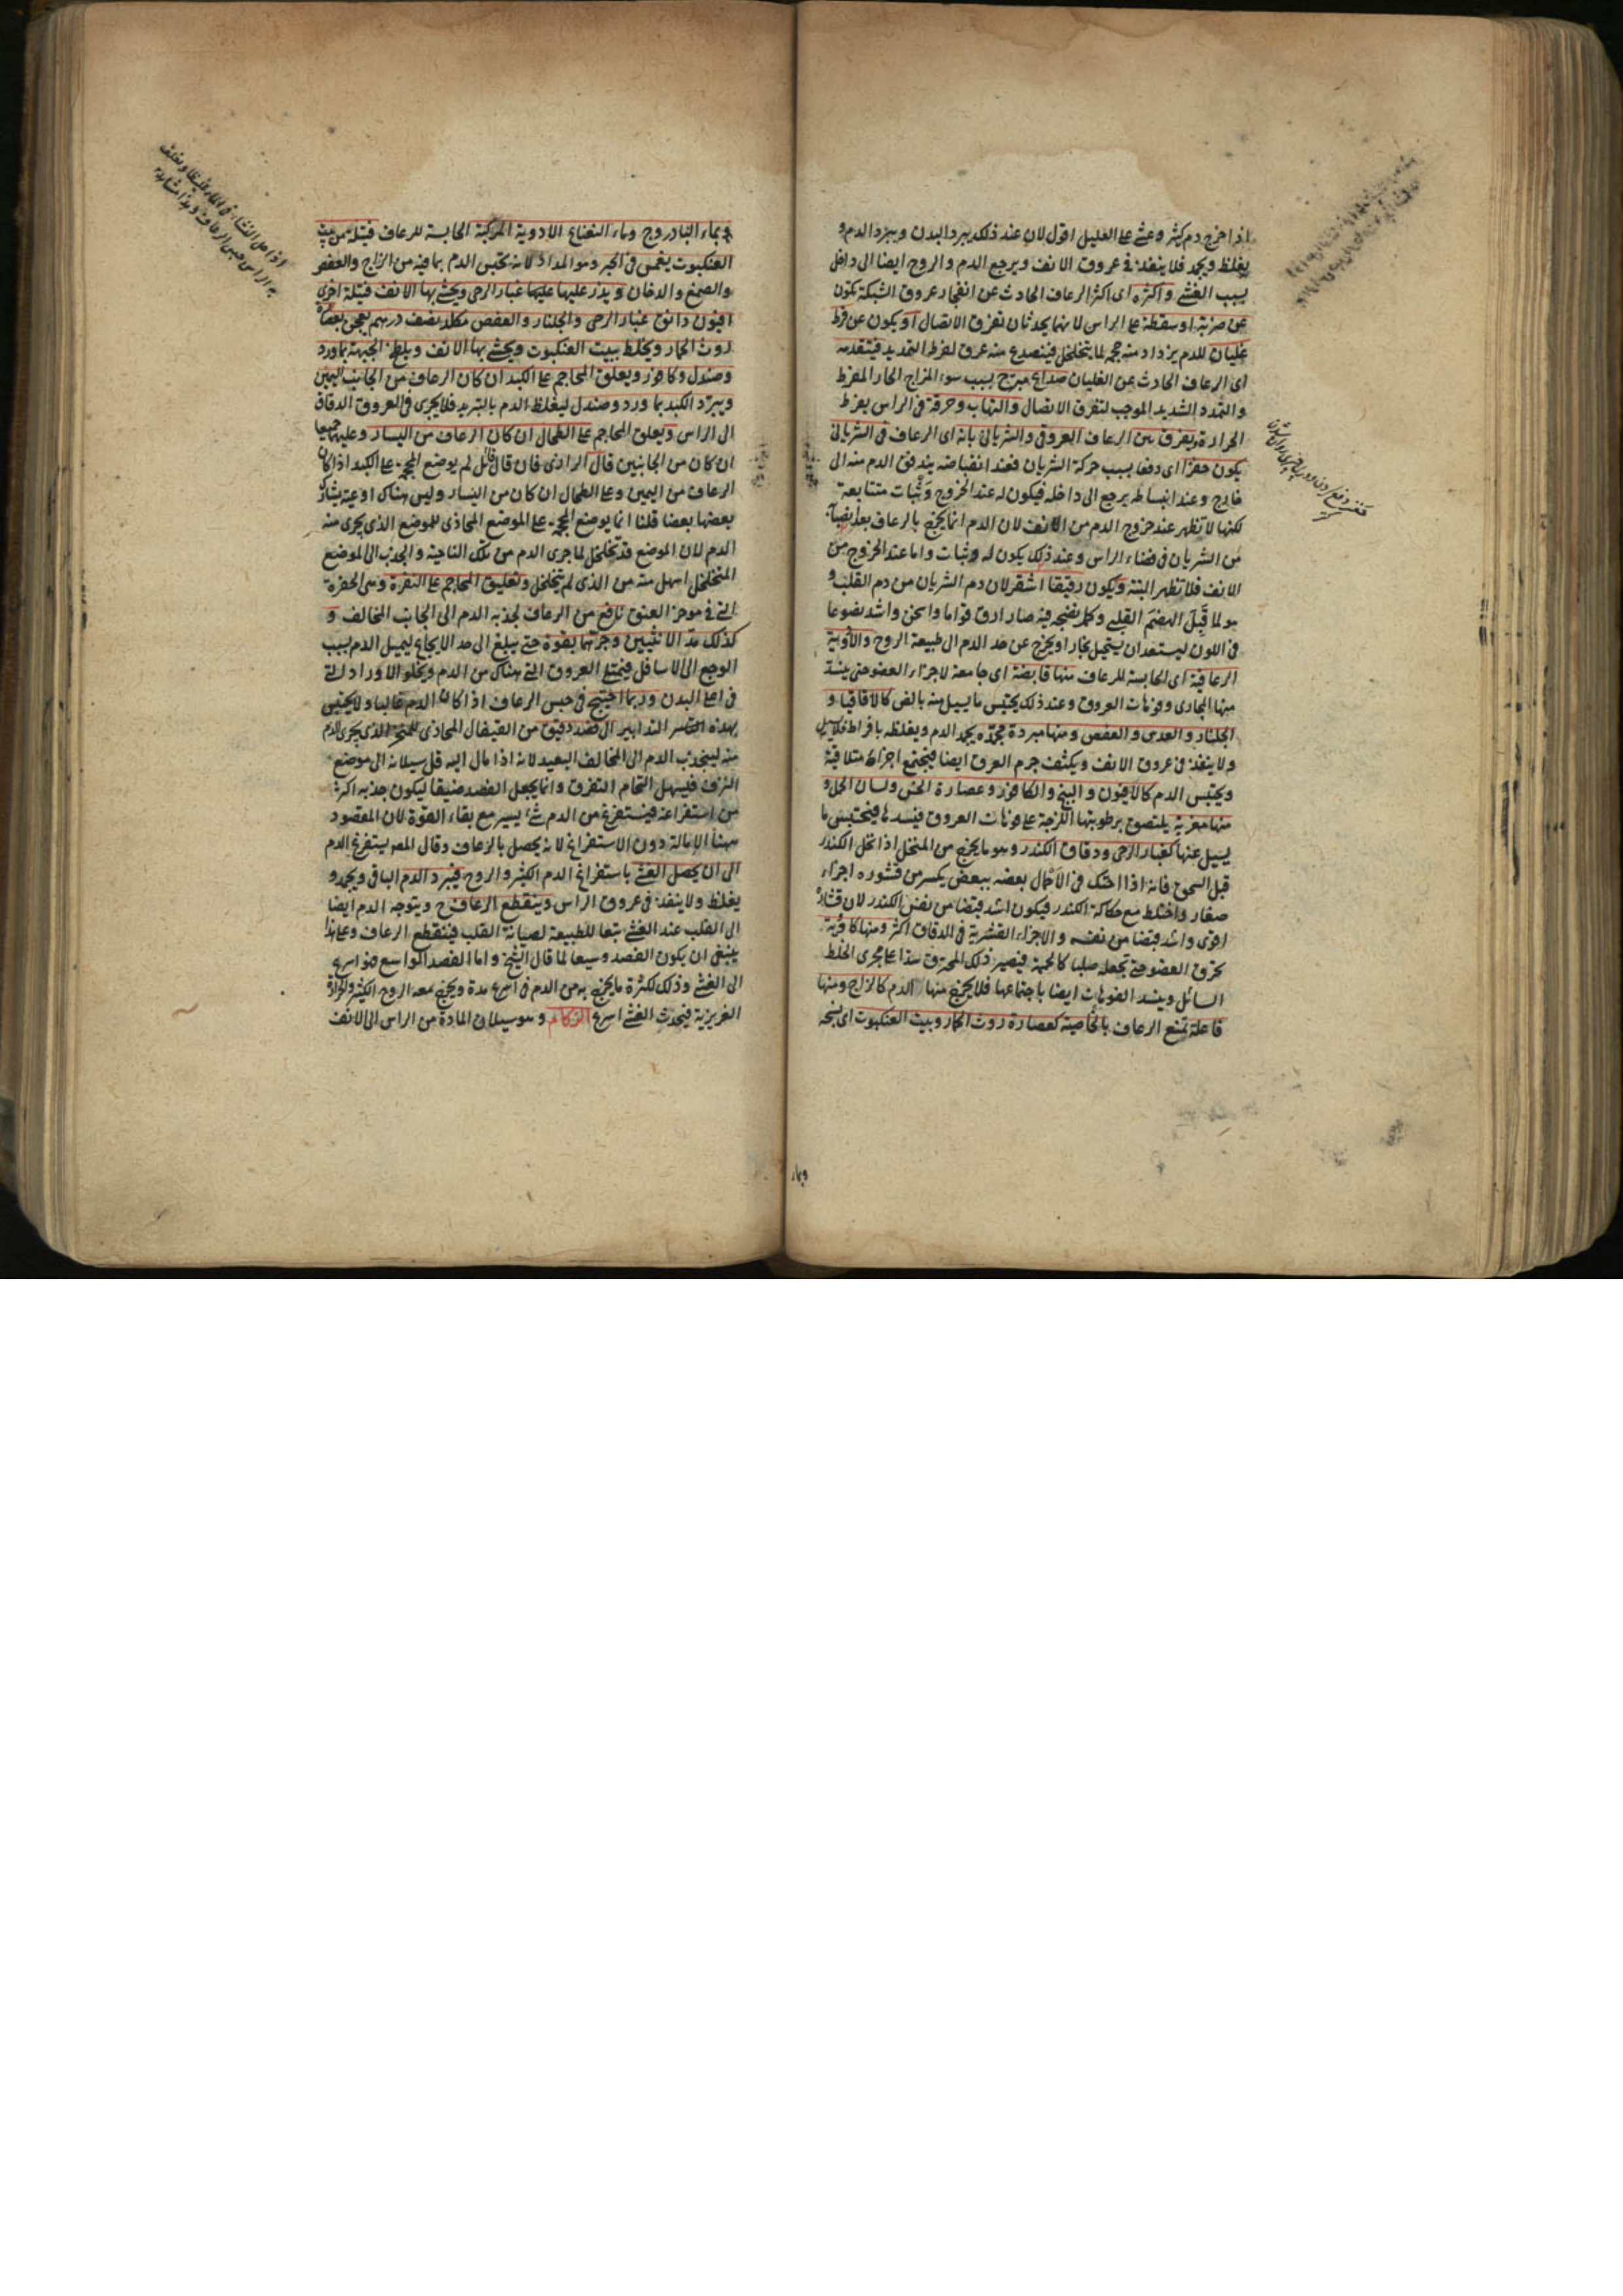 اذا خرج دم كثير وغشى على العليل اقول لان عند ذلك يبرد البدن ويبرد الدم و
يغلظ ويجمد فلا ينفذ في عروق الانف ويرجع الدم والروح ايضا الى داخل
بسبب الغشى واكثره اى اكثر الرعاف الحادث عن انفجار عروق الشبكة يكون
عن ضربة او سقطة على الراس لانهما يحدثان تفرق الاتصال او يكون عن فرط
غليان للدم يزداد منه حجمه لما يتخلخل فينصدع منه عرق لفرط التمديد فيتقدمه
اى الرعاف الحادث عن الغليان صداع مبرح بسبب سوء المزاج الحار المفرط
والتمدد الشديد الموجب لتفرق الاتصال والتهاب وحرقة في الراس بفرط
الحرارة ويفرق بين الرعاف العروقى والشريانى بانه اى الرعاف في الشريانى
يكون حفزا اى دفعا بسبب حركة الشريان فعند انقباضه يندفق الدم منه الى
خارج وعند انبساطه يرجع الى داخله فيكون له عند الخروج وثبات متتابعة
لكنها لا تظهر عند خروج الدم من الانف لان الدم انما يخرج بالرعاف بعد انصبابه
من الشريان في فضاء الراس وعند ذلك يكون له وثبات واما عند الخروج من
الانف فلا تظهر البتة ويكون رقيقا اشقر لان دم الشريان من دم القلب و
هو لما قبل الهضم القلبى وكمل نضجه فيه صار ارق قواما واسخن واشد نصوعا
في اللون ليستعد ان يستحيل بخارا ويخرج عن حد الدم الى طبيعة الروح والادوية
الرعافية اى الحابسة للرعاف منها قابضة اى جامعة لاجزاء العضو حتى ينسد
منها المجارى وفوهات العروق وعند ذلك يحتبس ما يسيل منه بالقبض كالاقاقيا و
الجلنار والعدس والعفص ومنها مبردة مجمدة يجمد الدم ويغلظه بافراط فلا يسيل
ولا ينفذ في عروق الانف ويكثف جرم العرق ايضا فيجتمع اجزاؤه متلاقية
ويحتبس الدم كالافيون والبنج والكافور وعصارة الخس ولسان الحمل و
منها مغرية يلتصق برطوبتها اللزجة على فوهات العروق فيسدها فيحتبس ما
يسيل عنها كغبار الرحى ودقاق الكندر وهو ما يخرج من المنخل اذا نخل الكندر
قبل السحق فانه اذا احتك في الاحمال بعضه ببعض يكسر من قشوره اجزاء
صغار واختلط مع حكاكة الكندر فيكون اشد قبضا من نفس الكندر لان قشاره
اقوى واشد قبضا من نفسه والاجزاء القشرية في الدقاق اكثر ومنها كاوية
تحرق العضو حتى تجعله صلبا كالحممة فيصير ذلك المحترق سدا على مجرى الخلط
السائل وينسد الفوهات ايضا باجتماعها فلا يخرج منها الدم كالزاج ومنها
فاعلة تمنع الرعاف بالخاصية كعصارة روث الحمار وبيت العنكبوت اى نسجه
وبماء
وبماء البادروج وماء النعناع الادوية المركبة الحابسة للرعاف فتيلة من بيت
العنكبوت يغمس في الحبر وهو المداد لانه يحبس الدم بما فيه من الزاج والعفص
والصمغ والدخان ويذر عليها غبار الرحى ويحشى بها الانف فتيلة اخرى
افيون دانق غبار الرحى والجلنار والعفص من كل نصف درهم يعجن بعصارة
روث الحمار ويخلط ببيت العنكبوت ويحشى بها الانف ويلطخ الجبهة بماورد
وصندل وكافور ويعلق المحاجم على الكبد ان كان الرعاف من الجانب اليمين
ويبرد الكبد بماورد وصندل ليغلظ الدم بالتبريد فلا يجرى في العروق الدقاق
الى الراس ويعلق المحاجم على الطحال ان كان الرعاف من اليسار وعليهما جميعا
ان كان من الجانبين قال الرازى فان قال قائل لم يوضع المحجمة على الكبد اذا كان
الرعاف من اليمين وعلى الطحال ان كان من اليسار وليس هناك اوعية يشارك
بعضها بعضا قلنا انما يوضع المحجمة على الموضع المحاذى للموضع الذى يجرى منه
الدم لان الموضع قد تخلخل لما جرى الدم من تلك الناحية والجذب الى الموضع
المتخلخل اسهل منه من الذى لم يتخلخل وتعليق المحاجم على النقرة وهى الحفرة
التى في موخر العنق نافع من الرعاف لجذبه الدم الى الجانب المخالف و
كذلك مد الانثيين وجرهما بقوة حتى يبلغ الى حد الايجاع ليميل الدم بسبب
الوجع الى الاسافل فيمتلئ العروق التى هناك من الدم ويخلو الاوراد التى
في اعلى البدن وربما احتيج في حبس الرعاف اذا كان الدم غالبا ولا يحتبس
بهذه التدابير الى فصد دقيق من القيفال المحاذى للمنخر الذى يجرى الدم
منه لينجذب الدم الى المخالف البعيد لانه اذا مال اليه قل سيلانه الى موضع
النزف فيسهل التحام التفرق وانما يجعل الفصد ضيقا ليكون جذبه اكثر
من استفراغه فيستفرغ من الدم شىء يسير مع بقاء القوة لان المقصود
ههنا الامالة دون الاستفراغ لانه يحصل بالرعاف وقال المصـ يستفرغ الدم
الى ان يحصل الغشى باستفراغ الدم الكثير والروح فيبرد الدم الباقى ويجمد و
يغلظ ولا ينفذ في عروق الراس وينقطع الرعاف ح ويتوجه الدم ايضا
الى القلب عند الغشى تبعا للطبيعة لصيانة القلب فينقطع الرعاف وعلى هذا
ينبغى ان يكون الفصد وسيعا لما قال الشيخ واما الفصد الواسع فهو اسرع
الى الغشى وذلك لكثرة ما يخرج به من الدم في اسرع مدة ويخرج معه الروح الكثير والحرارة
الغريزية فيحدث الغشى اسرع الزكام وهو سيلان المادة من الراس الى الانف